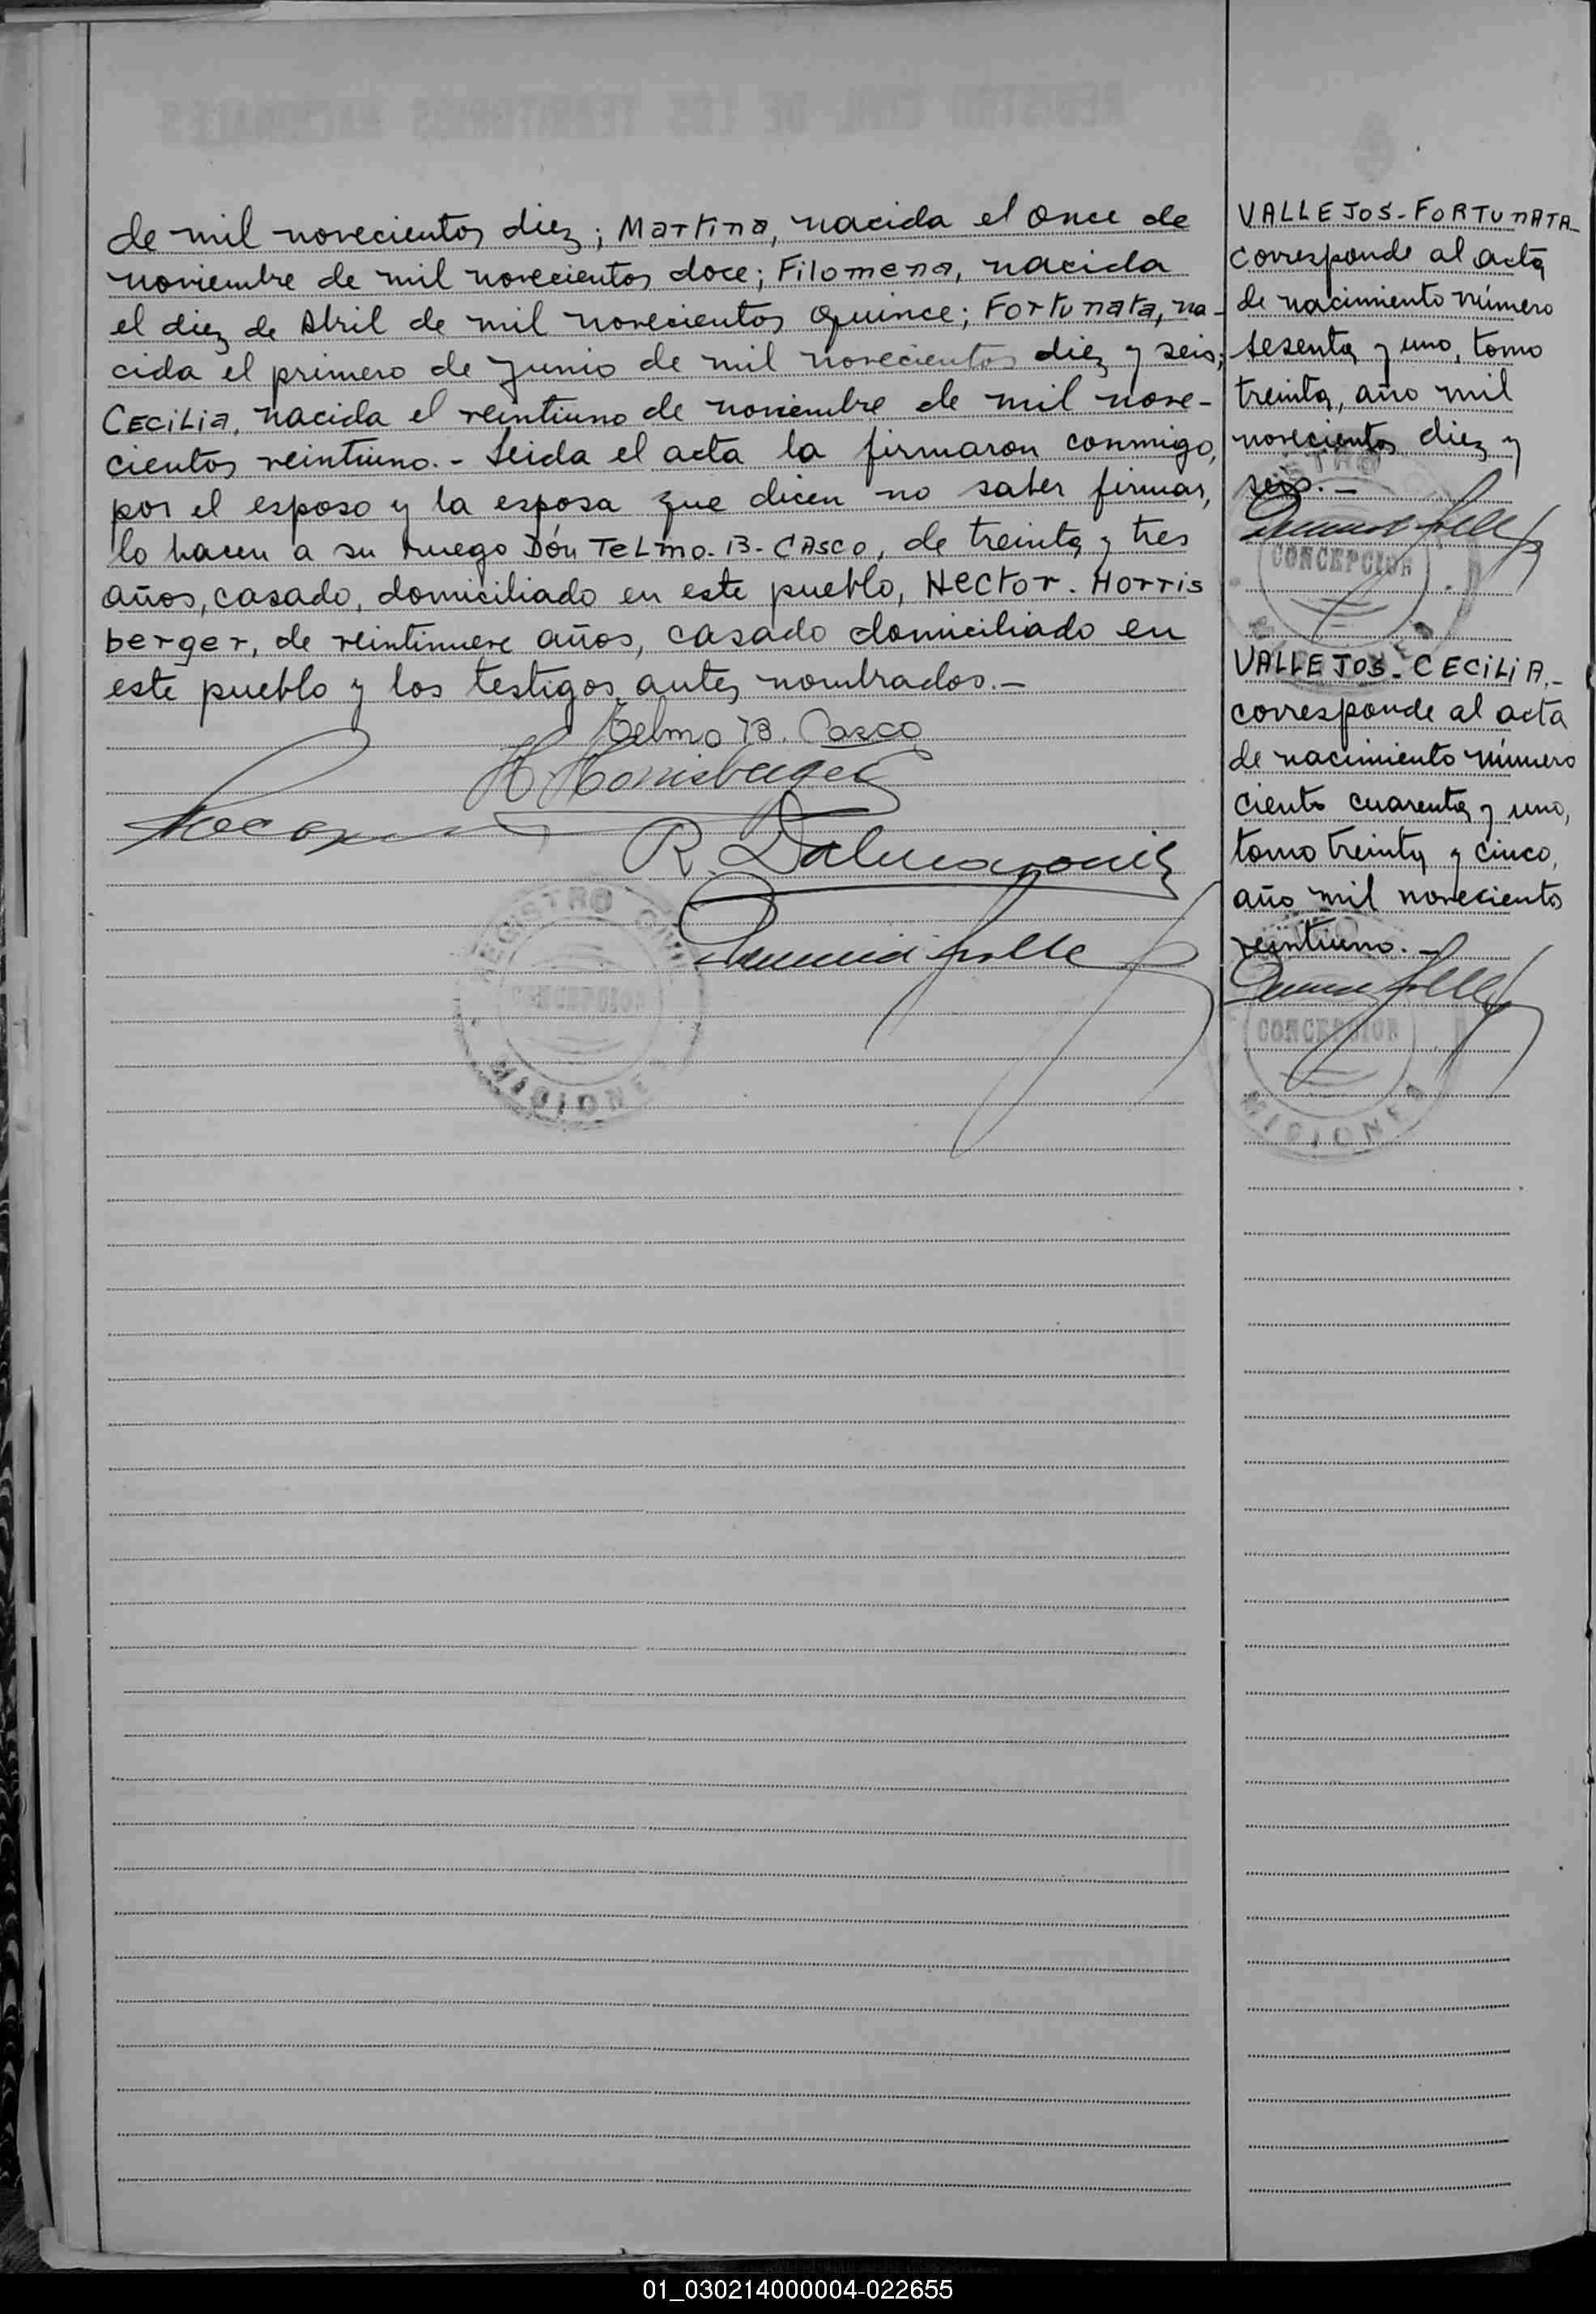 de mil novecientos diez; Martina, nacida el once de
noviembre de mil novecientos doce; Filomena, nacida
el diez de Abril de mil novecientos quince; Fortunata, na-
cida el primero de Junio de mil novecientos diez y seis;
CECILIA, nacida el veintiuno de noviembre de mil nove-
cientos veintiuno.- Leida el acta la firmaron conmigo,
por el esposo y la esposa que dicen no saber firmar,
lo hacen a su ruego Dón TELMO-B-CASCO, de treinta y tres
años, casado, domiciliado en este pueblo, HECTOR. Horris
berger, de veintinueve años, casado domiciliado en
este pueblo y los testigos antes nombrados.-
Telmo B. Casco
H Horrisberger
R. Dalmaronis
REGISTRO CIVIL
CONCEPCION
MISIONES
VALLEJOS-FORTUNATA-
corresponde al acta
de nacimiento número
sesenta y uno, tomo
treinta, año mil
novecientos diez y
seis.-
CONCEPCION
VALLEJOS-CECILIA.-
corresponde al acta
de nacimiento número
ciento cuarenta y uno,
tomo treinta y cinco,
año mil noveciento
veintiuno.-
CONCEPCION
MISIONES
01_030214000004-022655